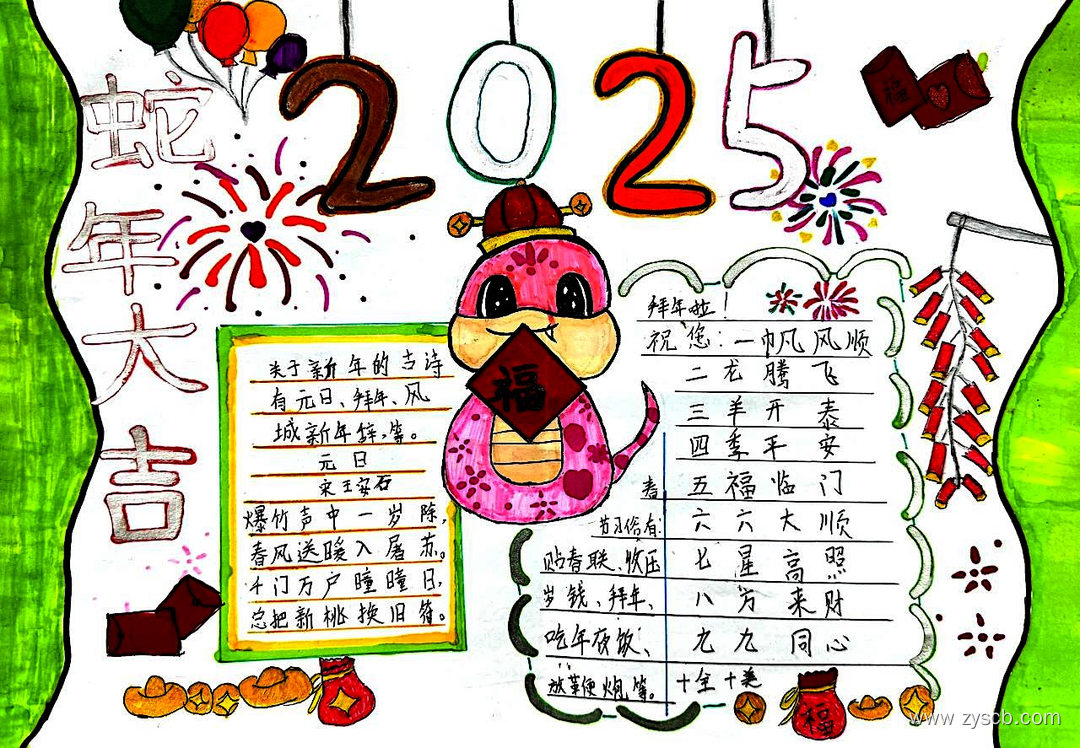 2025
蛇
年
大
吉
福
关于新年的古诗
有元日、拜年、风
城新年辞,等。
元日
宋王安石
爆竹声中一岁除,
春风送暖入屠苏。
千门万户曈曈日,
总把新桃换旧符。
福
拜年啦!
祝您:一帆风顺
二龙腾飞
三羊开泰
四季平安
五福临门
六六大顺
七星高照
八方来财
九九同心
十全十美
春
节习俗有:
贴春联、收压
岁钱、拜年、
吃年夜饭、
放鞭炮等。
福
www.zyscb.com